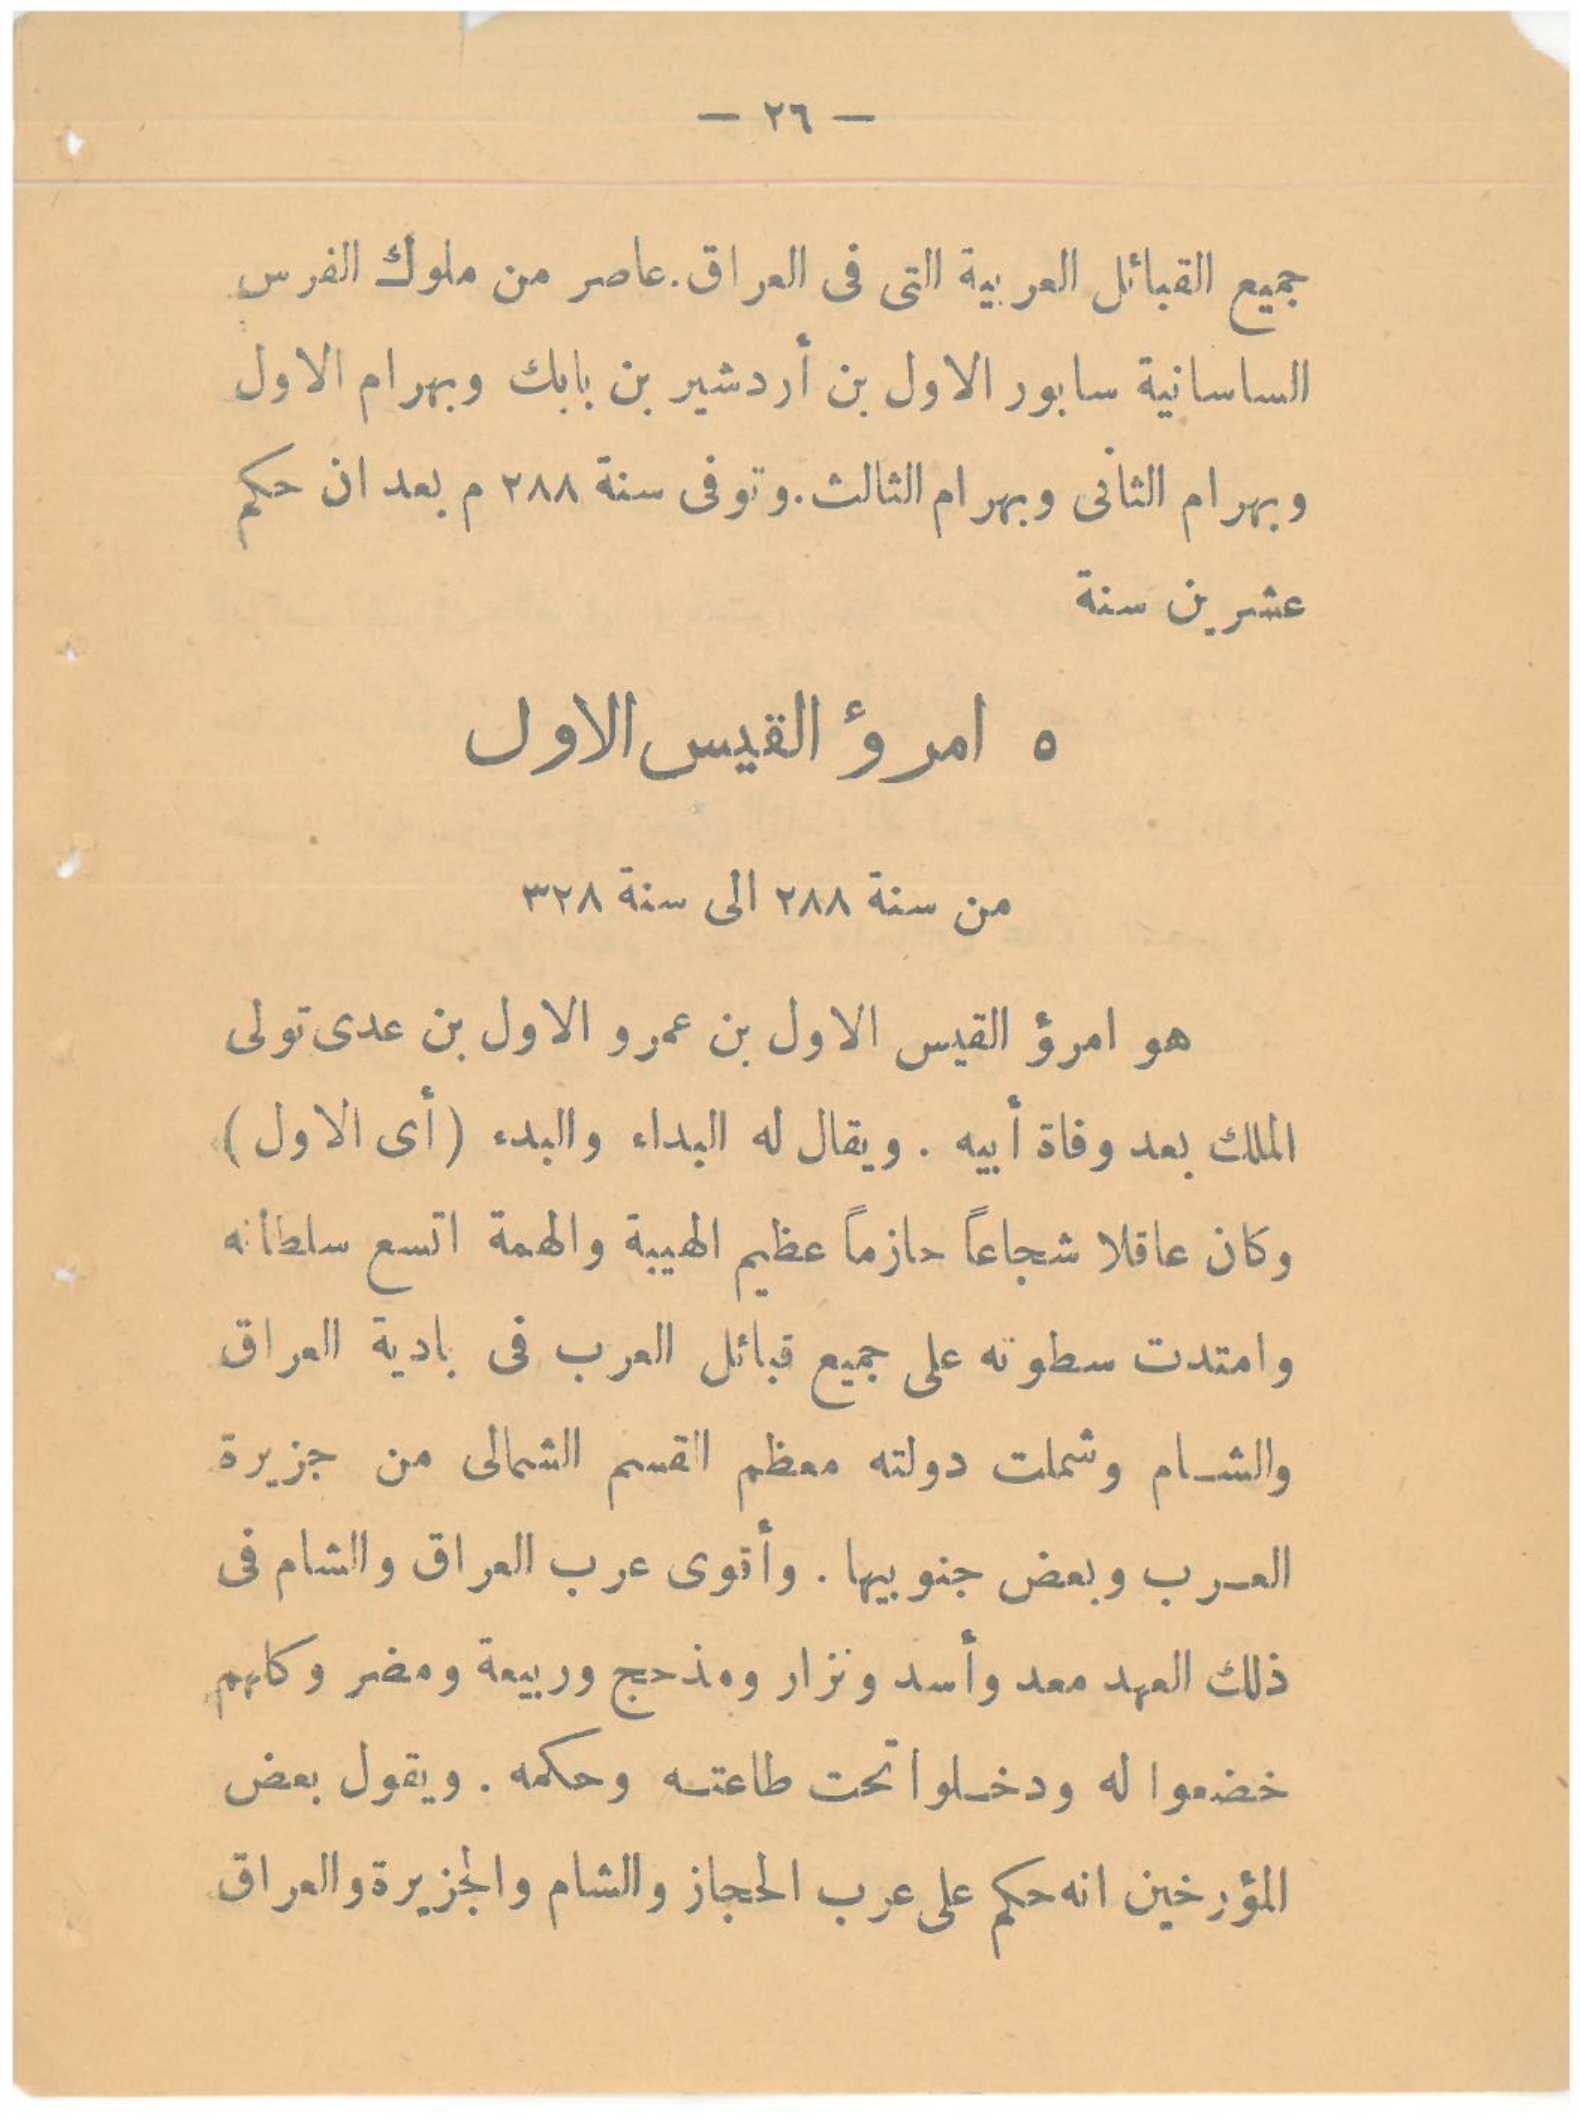 — ٢٦ —
جميع القبائل العربية التى فى العراق. عاصر من ملوك الفرس
الساسانية سابور الاول بن أردشير بن بابك وبهرام الاول
وبهرام الثانى وبهرام الثالث. وتوفى سنة ٢٨٨ م بعد ان حكم
عشرين سنة
٥ امرؤ القيس الاول
من سنة ٢٨٨ الى سنة ٣٢٨
هو امرؤ القيس الاول بن عمرو الاول بن عدى تولى
الملك بعد وفاة أبيه . ويقال له البداء والبدء (أى الاول)
وكان عاقلا شجاعاً حازماً عظيم الهيبة والهمة اتسع سلطانه
وامتدت سطوته على جميع قبائل العرب فى بادية العراق
والشام وشملت دولته معظم القسم الشمالى من جزيرة
العرب وبعض جنوبيها . وأقوى عرب العراق والشام فى
ذلك العهد معد وأسد ونزار ومذحج وربيعة ومضر وكلهم
خضعوا له ودخلوا تحت طاعته وحكمه . ويقول بعض
المؤرخين انه حكم على عرب الحجاز والشام والجزيرة والعراق